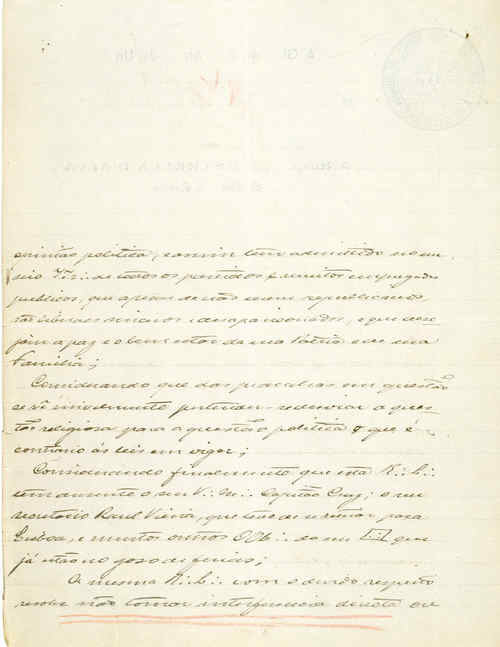 opinião politica, e assim tem admittido no seu
seio IIr∴ de todos os partidos e muitos empregados
publicos, que apesar de não serem republicanos
são liberaes sinceros e desapaixonados, e que dese-
jam a paz e o bem estar da sua Patria e de sua
Familia;
Considerando que das pracalhas em questão
se vê unicamente pretender-se desviar a ques-
tão religiosa para a questão politica o que é
contrario ás leis em vigor;
Considerando finalmente que esta R∴ L∴
tem ausente o seu V∴ M∴ Capitão Cruz; o seu
secretario Raul Vieira, que teve de se retirar para
Lisboa, e muitos outros OOb∴ do seu que
já estão no goso de ferias;
A mesma R∴ L∴ com o devido respeito
resolve não tomar interferencia directa ou